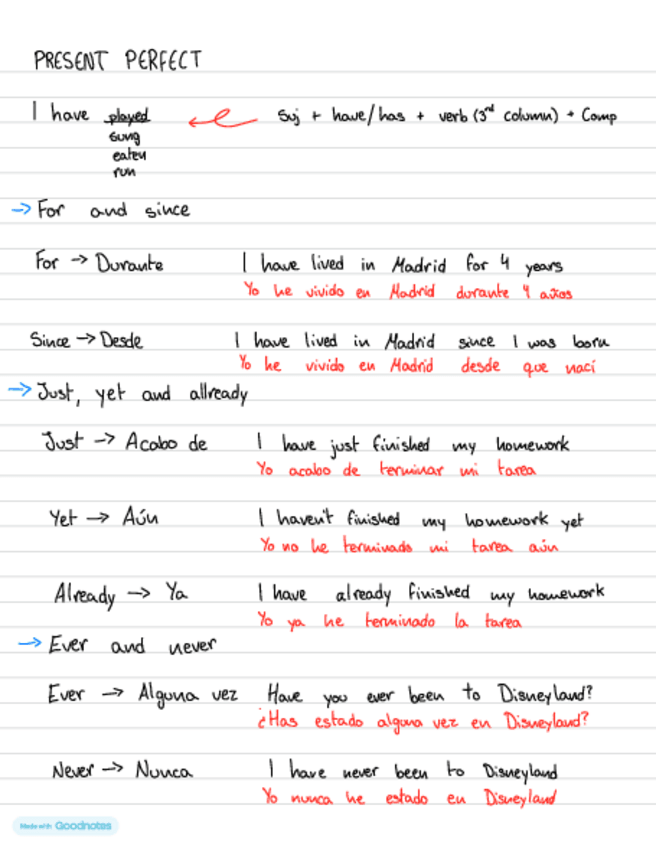 PRESENT PERFECT
I have played Suj + have/has + verb (3rd column) + Comp
sung
eaten
run
→ For and since
For → Durante I have lived in Madrid for 4 years
Yo he vivido en Madrid durante 4 años
Since → Desde I have lived in Madrid since I was born
Yo he vivido en Madrid desde que nací
→ Just, yet and allready
Just → Acabo de I have just finished my homework
Yo acabo de terminar mi tarea
Yet → Aún I haven't finished my homework yet
Yo no he terminado mi tarea aún
Already → Ya I have already finished my homework
Yo ya he terminado la tarea
→ Ever and never
Ever → Alguna vez Have you ever been to Disneyland?
¿Has estado alguna vez en Disneyland?
Never → Nunca I have never been to Disneyland
Yo nunca he estado en Disneyland
Made with Goodnotes